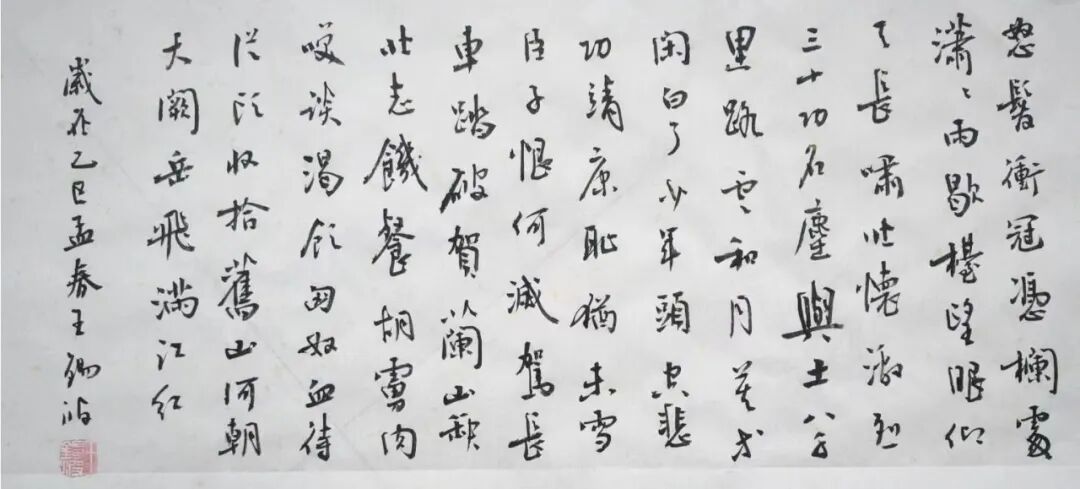 怒髮衝冠憑欄處
瀟〻雨歇擡望眼仰
天長嘯壯懷激烈
三十功名塵與土八千
里路雲和月莫等
閑白了少年頭空悲
切靖康恥猶未雪
臣子恨何滅駕長
車踏破賀蘭山缺
壯志饑餐胡虜肉
笑談渴飲匈奴血待
從頭收拾舊山河朝
天闕岳飛滿江紅
歲在乙巳孟春王